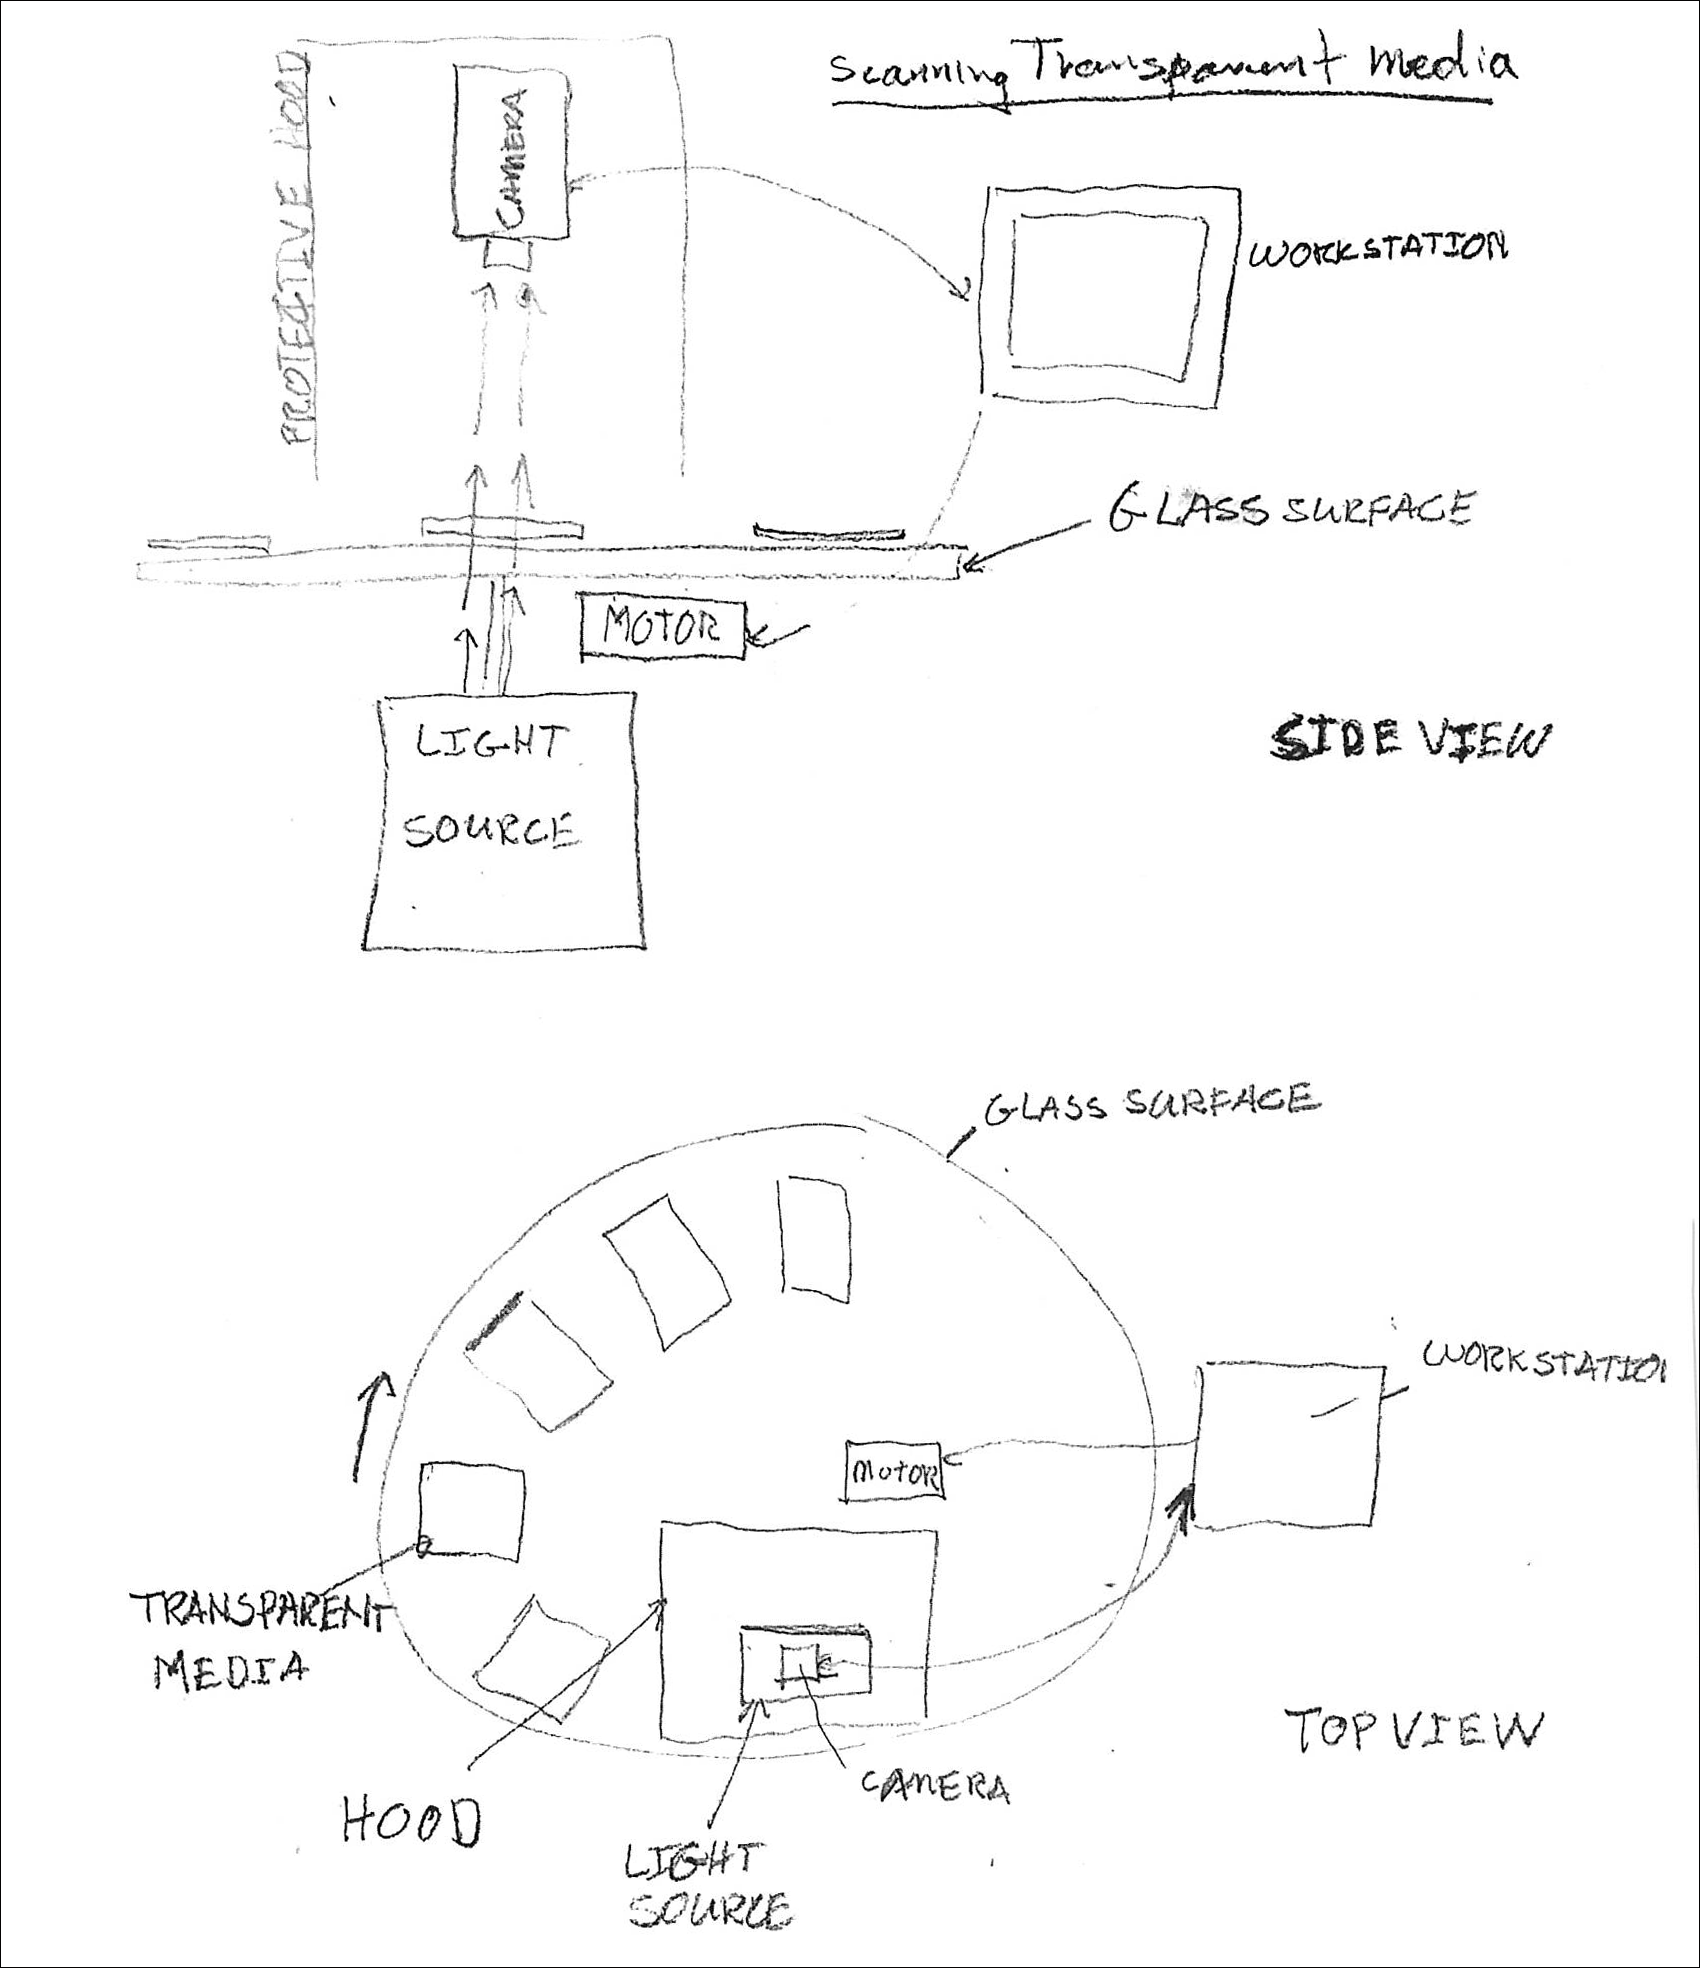 Scanning Transparent Media
PROTECTIVE HOOD
CAMERA
WORKSTATION
GLASS SURFACE
MOTOR
LIGHT
SOURCE
SIDE VIEW
GLASS SURFACE
WORKSTATION
MOTOR
TRANSPARENT
MEDIA
TOP VIEW
CAMERA
HOOD
LIGHT
SOURCE